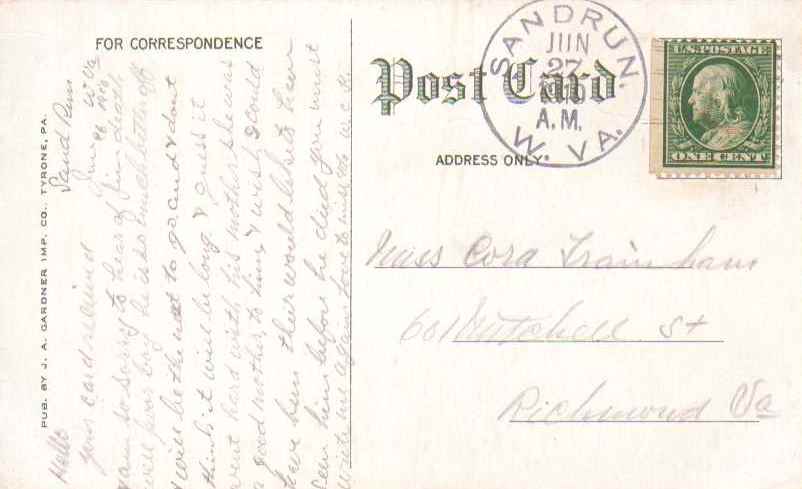 FOR CORRESPONDENCE
Post Card
ADDRESS ONLY.
SANDRUN.
JUN
27
A.M.
W. VA.
U.S. POSTAGE
ONE CENT
PUB. BY J. A. GARDNER IMP. CO., TYRONE, PA.
Sand Run
W Va
Hello
your card recieved
am so sorry to hear of Jim death
well poor boy he is so much better off
I will be the next to go and I dont
think it will be long I guess it
went hard with his mother she was
a good mother to him, I wish I could
have him their would like to have
seen him before he died you must
write me again love to
Miss Cora Trainham
601 Mitchell St
Richmond Va